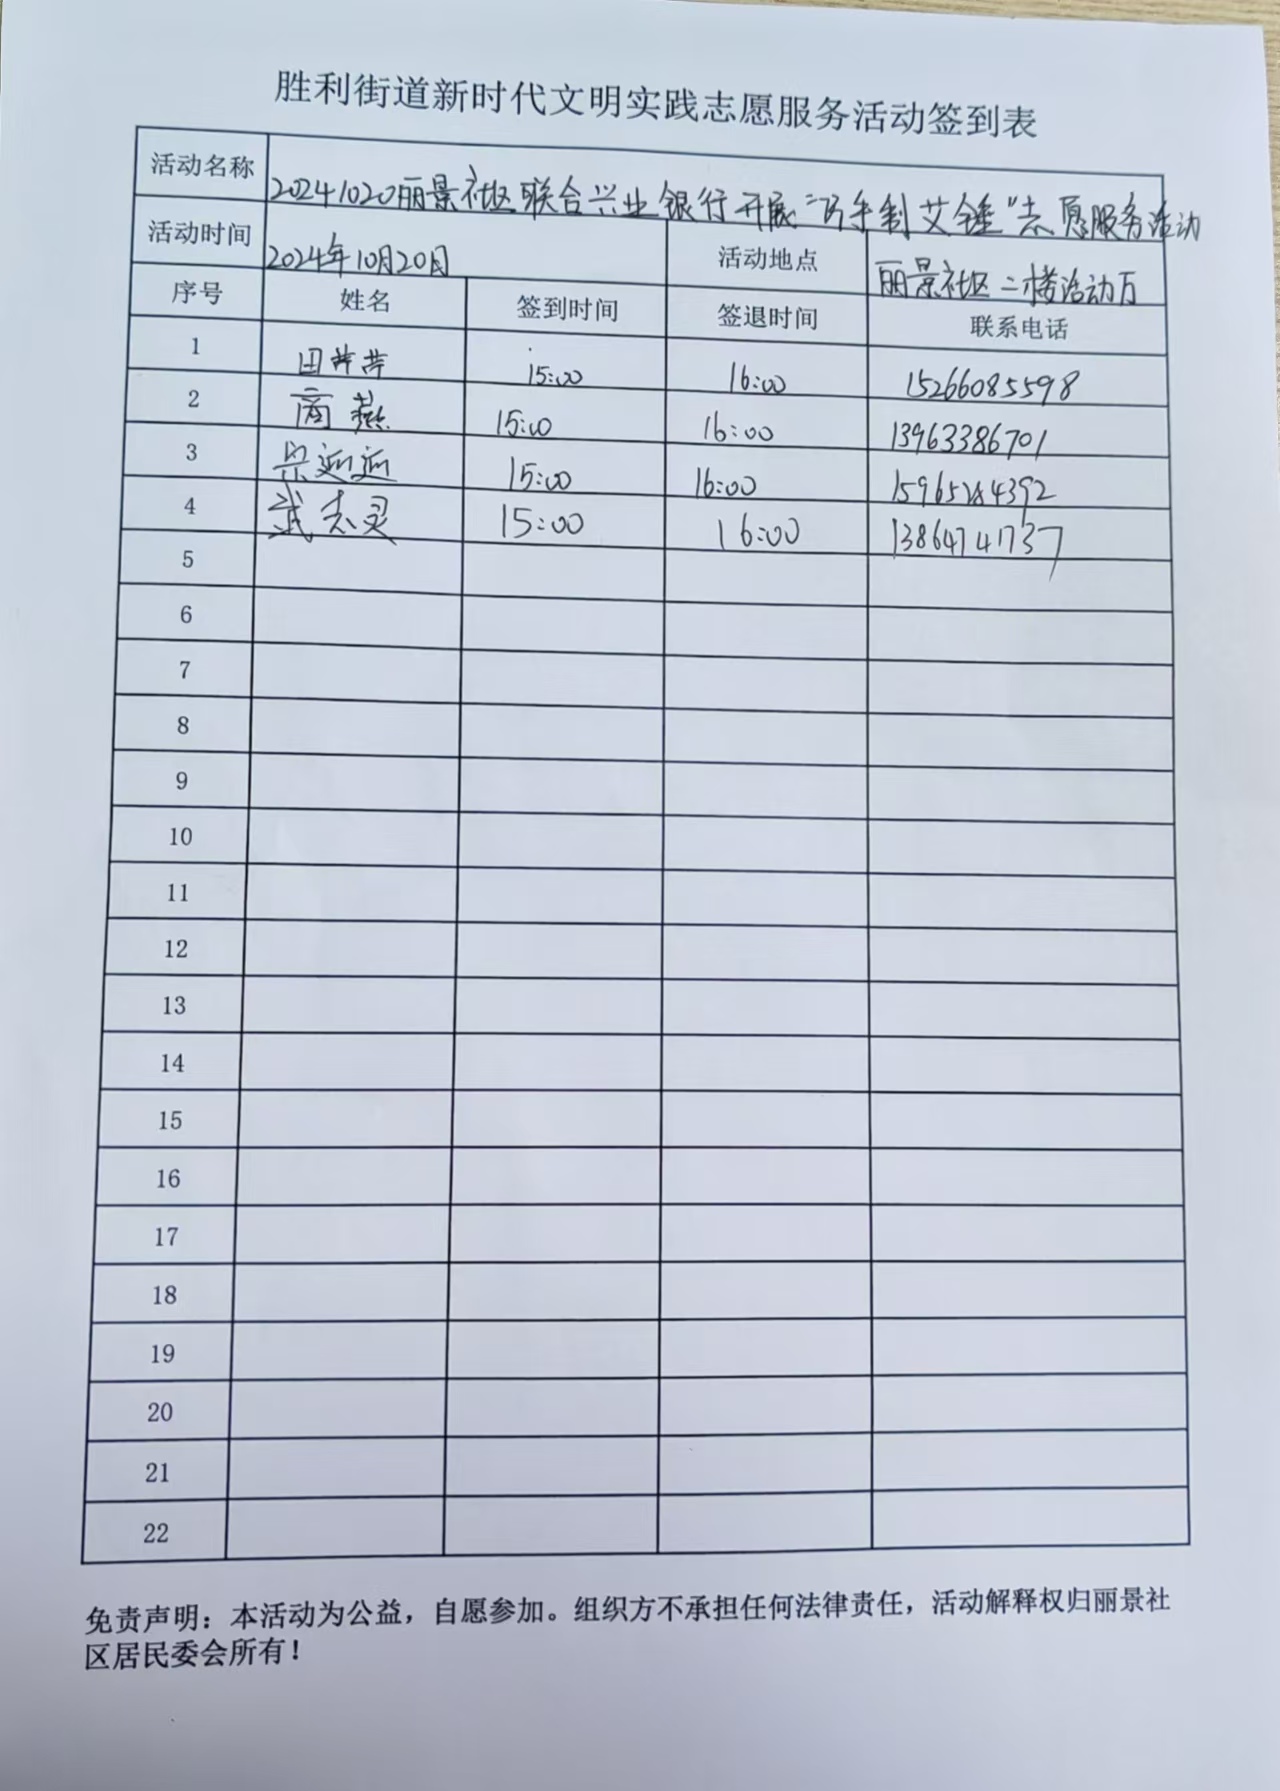 胜利街道新时代文明实践志愿服务活动签到表
活动名称 20241020丽景社区联合兴业银行开展“巧手制艾锤”志愿服务活动
活动时间 2024年10月20日 活动地点 丽景社区二楼活动万
序号 姓名 签到时间 签退时间 联系电话
1 田芊芊 15:00 16:00 15266085598
2 商燕 15:00 16:00 13963386701
3 迎迎 15:00 16:00
4 武志灵 15:00 16:00 13864741737
5
6
7
8
9
10
11
12
13
14
15
16
17
18
19
20
21
22
免责声明：本活动为公益，自愿参加。组织方不承担任何法律责任，活动解释权归丽景社
区居民委会所有！